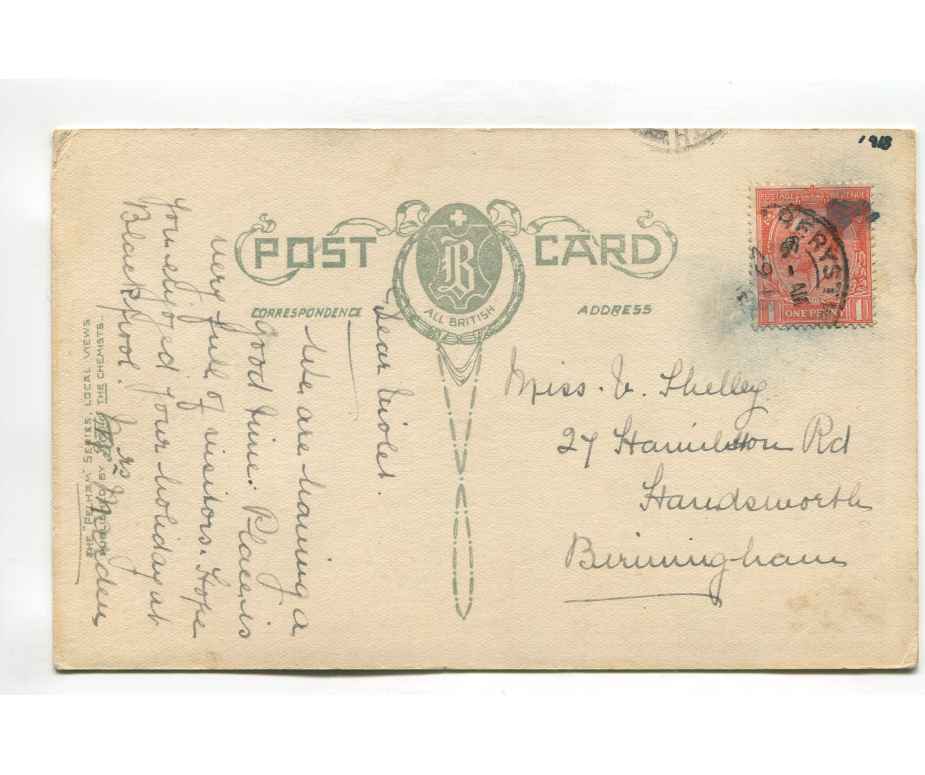 1918
POSTAGE
POST CARD
B
ALL BRITISH
CORRESPONDENCE
ADDRESS
ERYST
ONE PENNY
Dear Violet.
We are having a
good time. Place is
very full of visitors. Hope
you enjoyed your holiday at
Blackpool.
THE "PELHAM" SERIES, LOCAL VIEWS
PUBLISHED BY THE CHEMISTS.
Miss. V. Shelley
27 Hamilton Rd
Handsworth
Birmingham